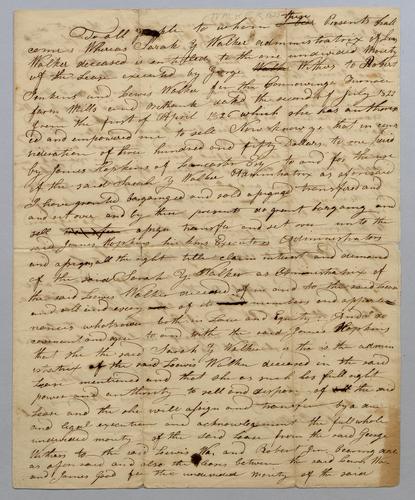 To all people to whom these Presents shall
come Whereas Sarah Y Walker administratrix of Lewis
Walker deceased is entitled to the one undivided Moiety
of the Lease executed by George Withers to Robert
Jenkins and Lewis Walker for the Connowingo Furnace
farm Mills and dated the second of July 1825
from the first of April 1826 which she has authoris
ed and empowered me to sell Now know ye that in cons
ideration of three hundred and fifty Dollars to me paid
by James Hopkins of Lancaster Esq to and for the use
of the said Sarah Y Walker Administratrix as aforesaid
I have granted bargained and sold assigned transferred and
and set over and by these presents do grant bargain and
sell assign transfer and set over unto the
said James Hopkins his heirs Executors Administrators
and assigns all the right title claim interest and demand
of the said Sarah Y. Walker as Administratrix of
the said Lewis Walker deceased of in and to the said Lease
and all and every members and appurte
nances whatsoever both in Law and Equity. & I do
covenant and agree to and with the said James Hopkins
that she the said Sarah Y Walker is the adminis
tratrix of the said Lewis Walker deceased in the said
Lease mentioned and that she as such has full right
power and authority to sell and dispose of the said
Lease and the she will assign and transfer by a due
and legal execution and acknowledgement the full whole
undivided moiety of the said Lease from the said George
Withers to the said Lewis Wa. and Robert Jen bearing date
as aforesaid and also the Lease between the said Lewis Wa
and James Good for the undivided moiety of the said